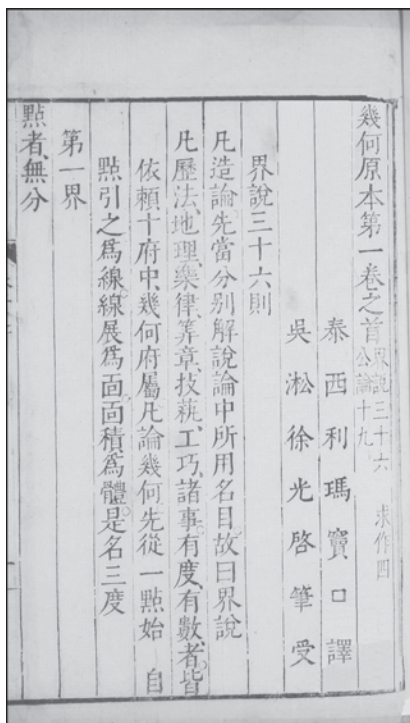 幾何原本第一卷之首 界說三十六 求作四
公論十九
泰西利瑪竇口譯
吳淞徐光啓筆受
界說三十六則
凡造論先當分別解說論中所用名目故曰界說
凡歷法、地理、樂律、筭章、技藝、工巧、諸事、有度、有數者、皆
依賴十府中、幾何府屬凡論幾何、先從一點始 自
點引之爲線、線展爲面、面積、爲體。是名三度
第一界
點者、無分